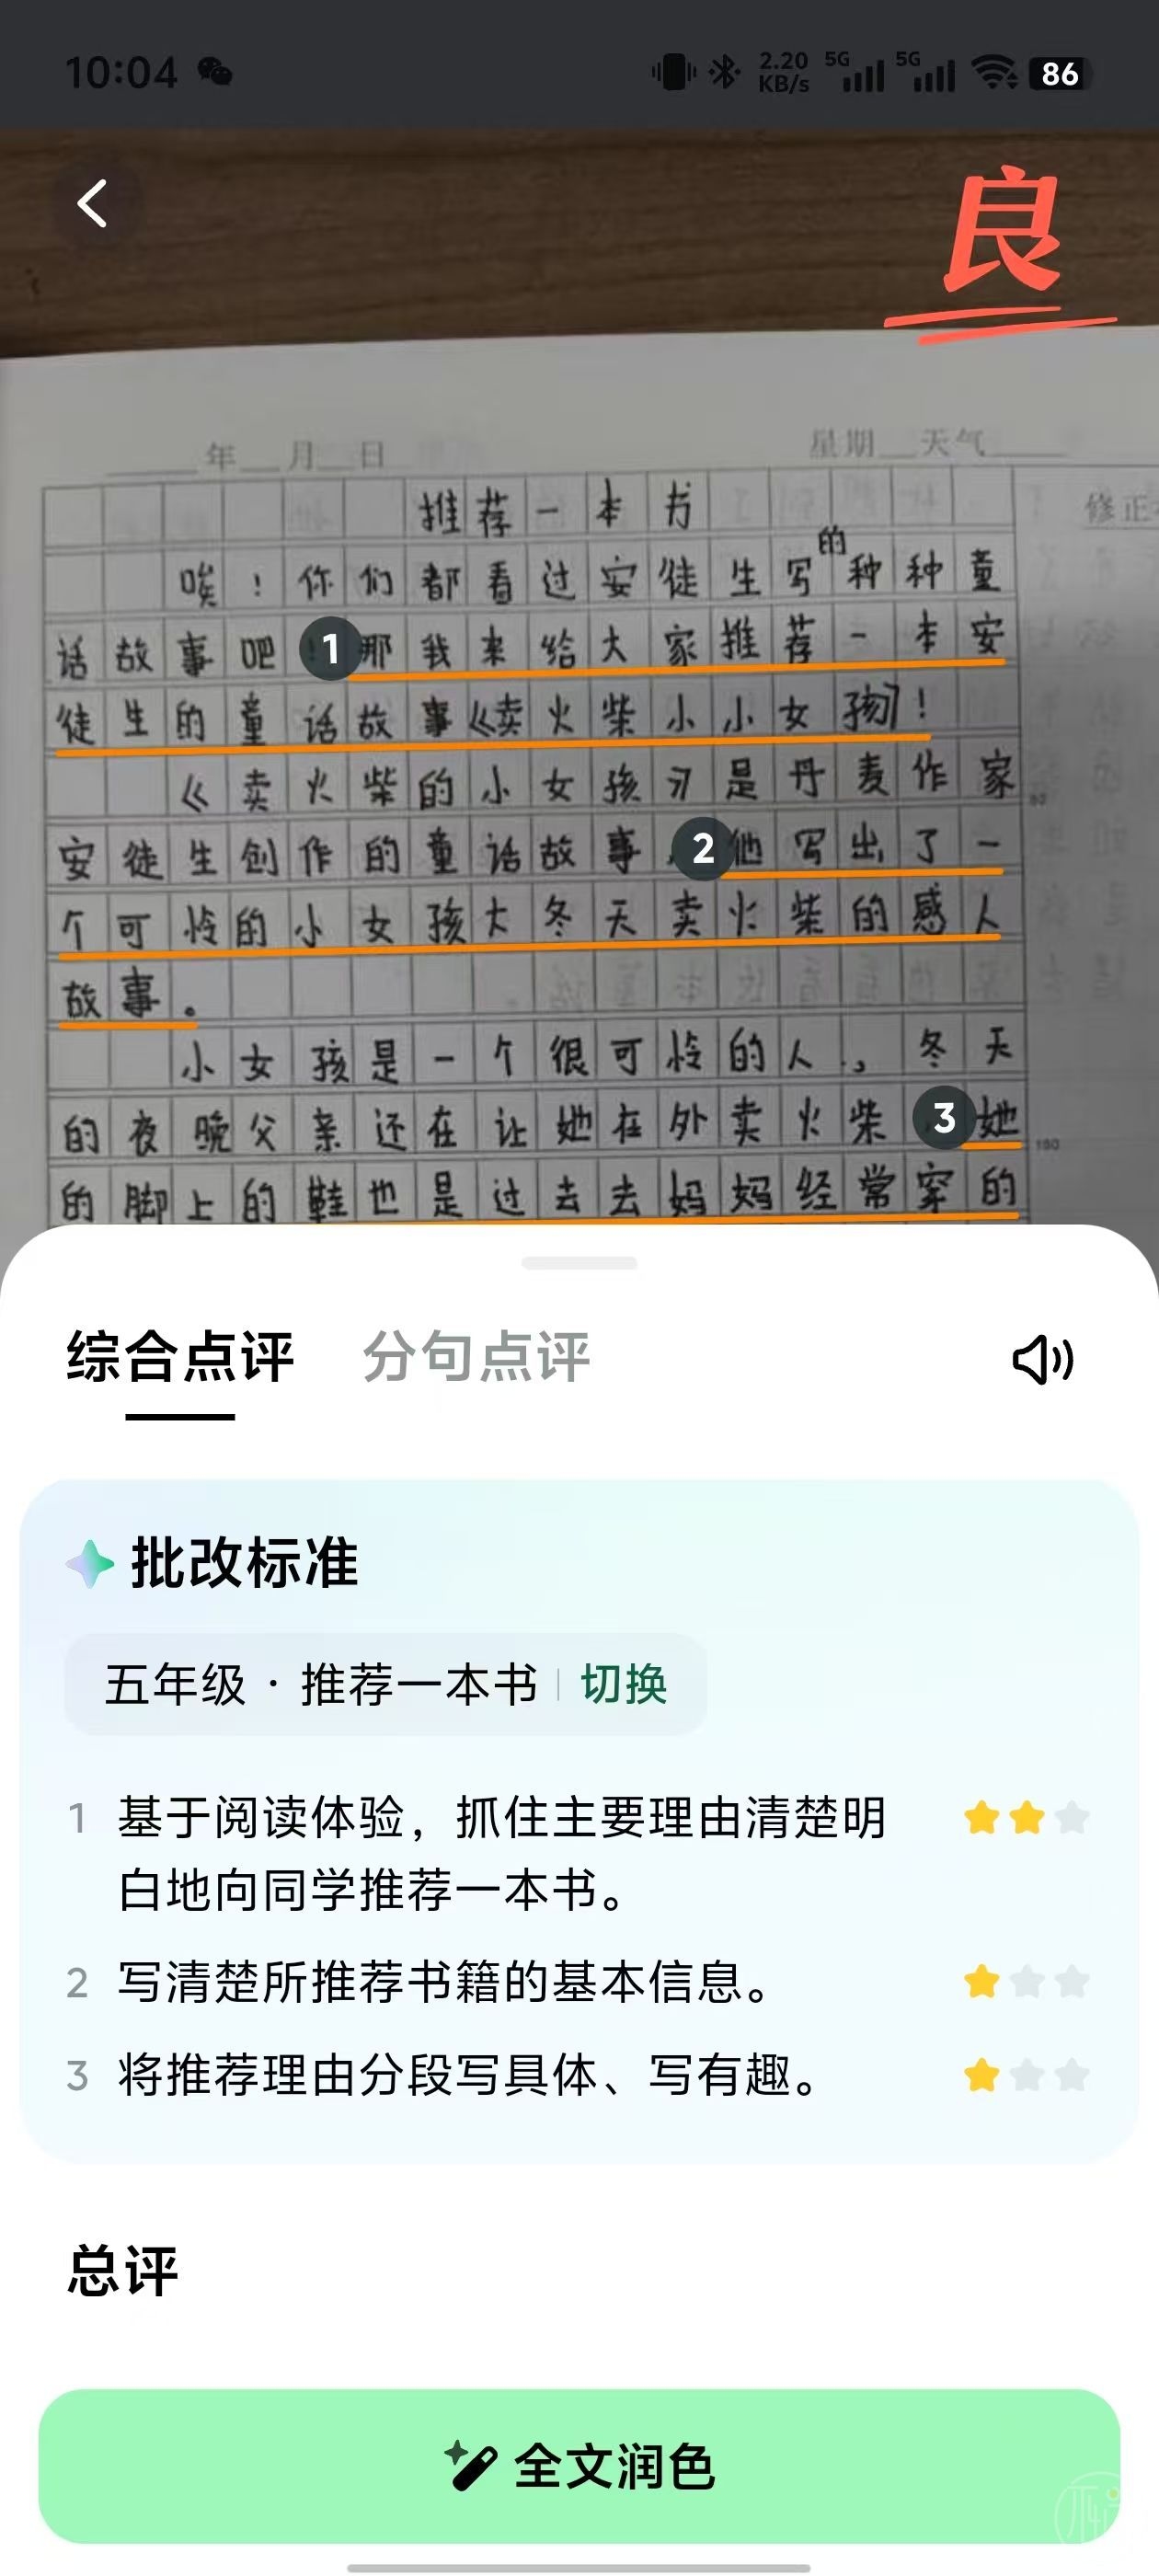 10:04
2.20 KB/s 5G 5G 86
良
年 月 日 星期 天气
推荐一本书
修正
的
唉！你们都看过安徒生写种种童
话故事吧 1 那我来给大家推荐一本安
徒生的童话故事《卖火柴小小女孩》！
《卖火柴的小女孩》是丹麦作家
安徒生创作的童话故事 2 他写出了一
个可怜的小女孩大冬天卖火柴的感人
故事。
小女孩是一个很可怜的人，冬天
的夜晚父亲还在让她在外卖火柴 3 她
的脚上的鞋也是过去去妈妈经常穿的
综合点评 分句点评
批改标准
五年级 · 推荐一本书 | 切换
1 基于阅读体验，抓住主要理由清楚明
白地向同学推荐一本书。
2 写清楚所推荐书籍的基本信息。
3 将推荐理由分段写具体、写有趣。
总评
全文润色